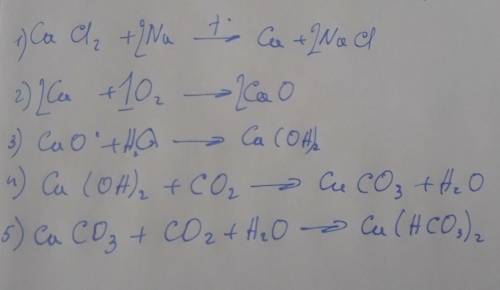 1) Ca Cl₂ + 2Na t·→ Ca + 2NaCl
2) 2Ca + 1O₂ → 2CaO
3) CaO + H₂O → Ca(OH)₂
4) Ca(OH)₂ + CO₂ → CaCO₃ + H₂O
5) CaCO₃ + CO₂ + H₂O → Ca(HCO₃)₂